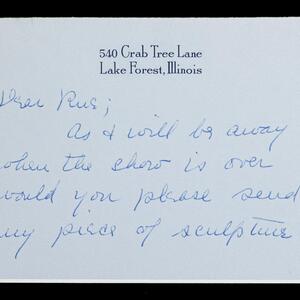 540 Crab Tree Lane
Lake Forest, Illinois
Dear
As I will be away
when the show is over
would you please send
my piece of sculpture